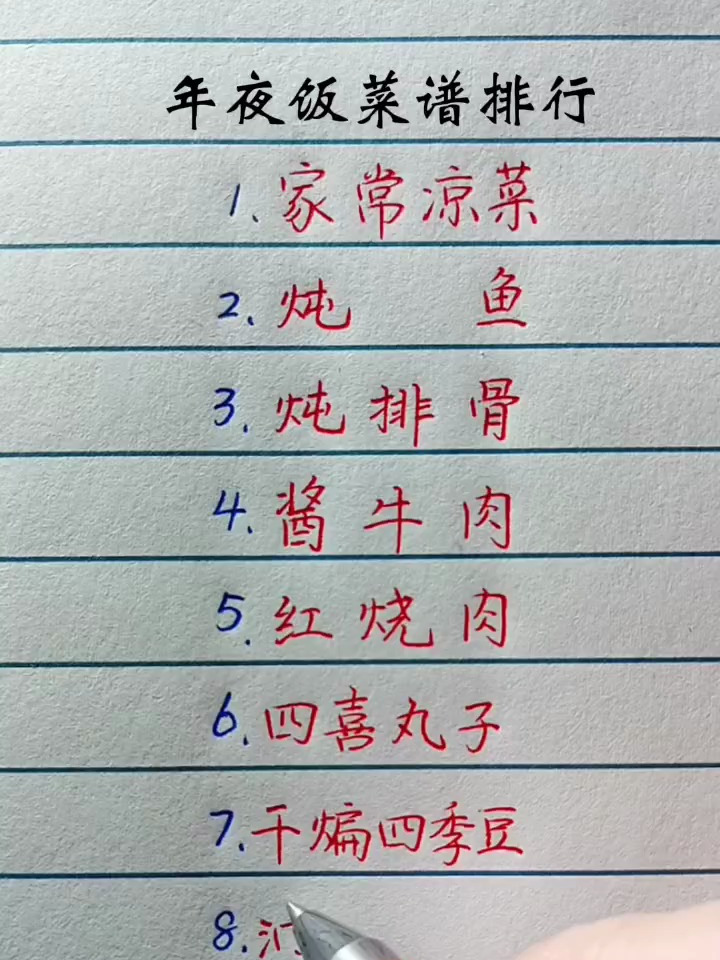 年夜饭菜谱排行
1. 家常凉菜
2. 炖 鱼
3. 炖排骨
4. 酱牛肉
5. 红烧肉
6. 四喜丸子
7. 干煸四季豆
8.